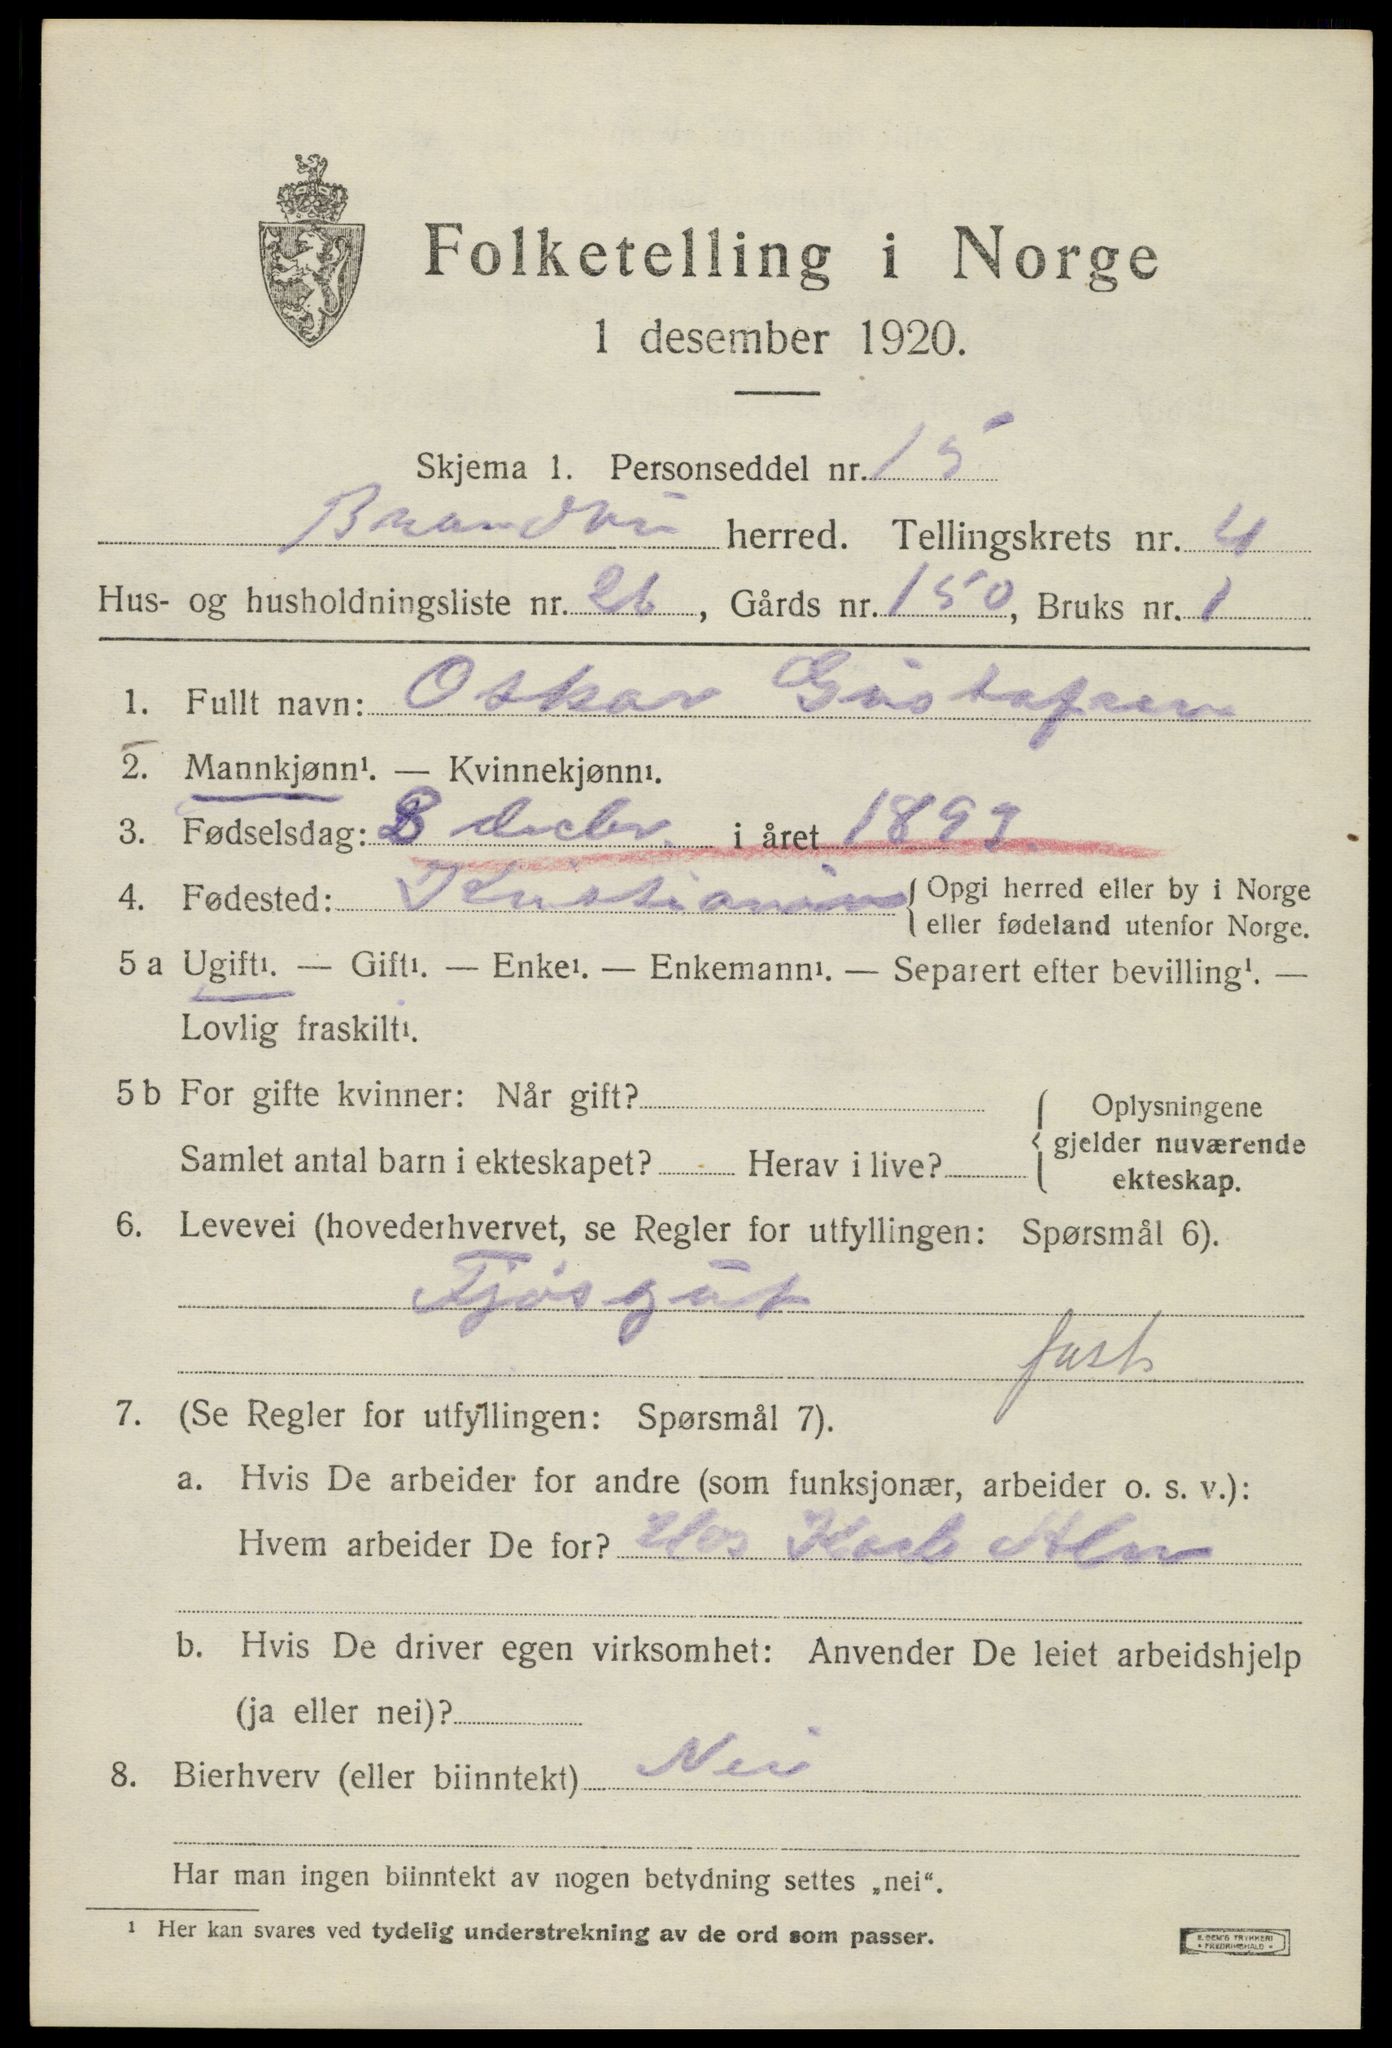 Folketelling i Norge
1 desember 1920.
Skjema 1. Personseddel nr. 15
Brandvu herred. Tellingskrets nr. 4
Hus- og husholdningsliste nr. 26, Gårds nr. 150, Bruks nr. 1
1. Fullt navn: Oskar Gustafsen
2. Mannkjønn¹. — Kvinnekjønn¹.
3. Fødselsdag: 8 decbr. i året 1899.
4. Fødested: Kristiania { Opgi herred eller by i Norge
eller fødeland utenfor Norge.
5 a Ugift¹. — Gift¹. — Enke¹. — Enkemann¹. — Separert efter bevilling¹. —
Lovlig fraskilt¹.
5 b For gifte kvinner: Når gift?
Samlet antal barn i ekteskapet? Herav i live?
Oplysningene
gjelder nuværende
ekteskap.
6. Levevei (hovederhvervet, se Regler for utfyllingen: Spørsmål 6).
Fjøsgut
fast
7. (Se Regler for utfyllingen: Spørsmål 7).
a. Hvis De arbeider for andre (som funksjonær, arbeider o. s. v.):
Hvem arbeider De for? Hos Karl Alm
b. Hvis De driver egen virksomhet: Anvender De leiet arbeidshjelp
(ja eller nei)?
8. Bierhverv (eller biinntekt) Nei
Har man ingen biinntekt av nogen betydning settes „nei“.
¹ Her kan svares ved tydelig understrekning av de ord som passer.
E. SEM'S TRYKKERI
• FREDRIKSHALD •